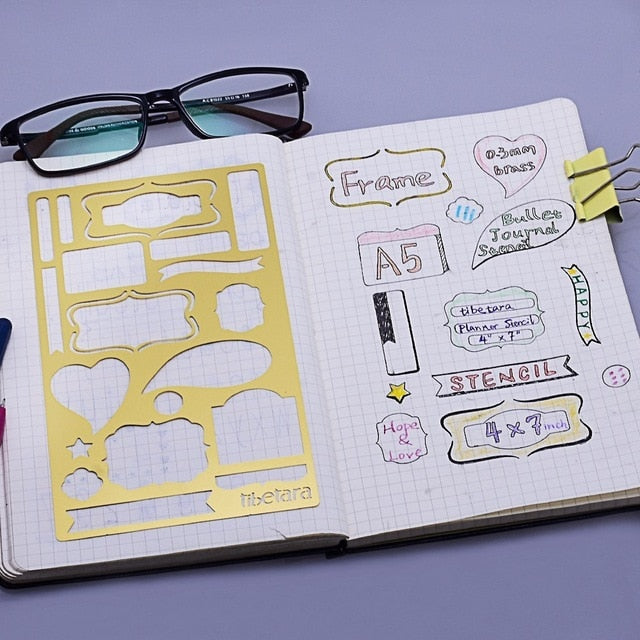 Frame
0.3mm
brass
Bullet
Journal
Stencil
A5
tibetara
Planner Stencil
4" x 7"
HAPPY
STENCIL
Hope
&
Love
4 x 7 inch
tibetara